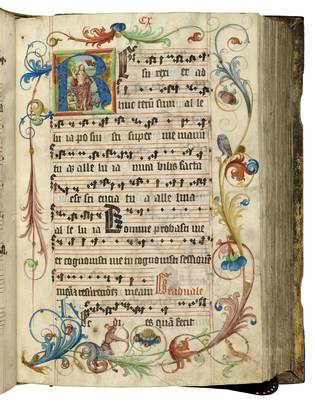 CX
R
su rexi et ad
huc tecū sum al le
lu ia po sui sti super me manū
tu ā alle lu ia mira bilis facta
est sci encia tu a alle luia
al le lu ia Domine probasti me
et cognouisti me tu cognouisti sessionē
meā et resurrectionē meam Graduale
Hec di es quā fecit